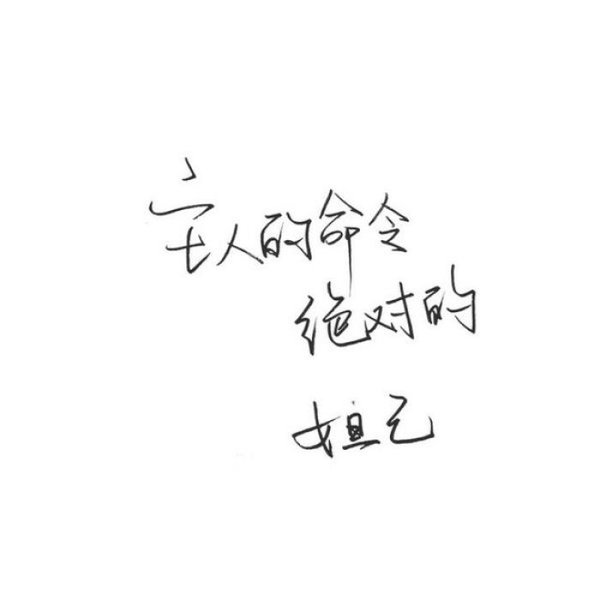 主人的命令
绝对的
妲己